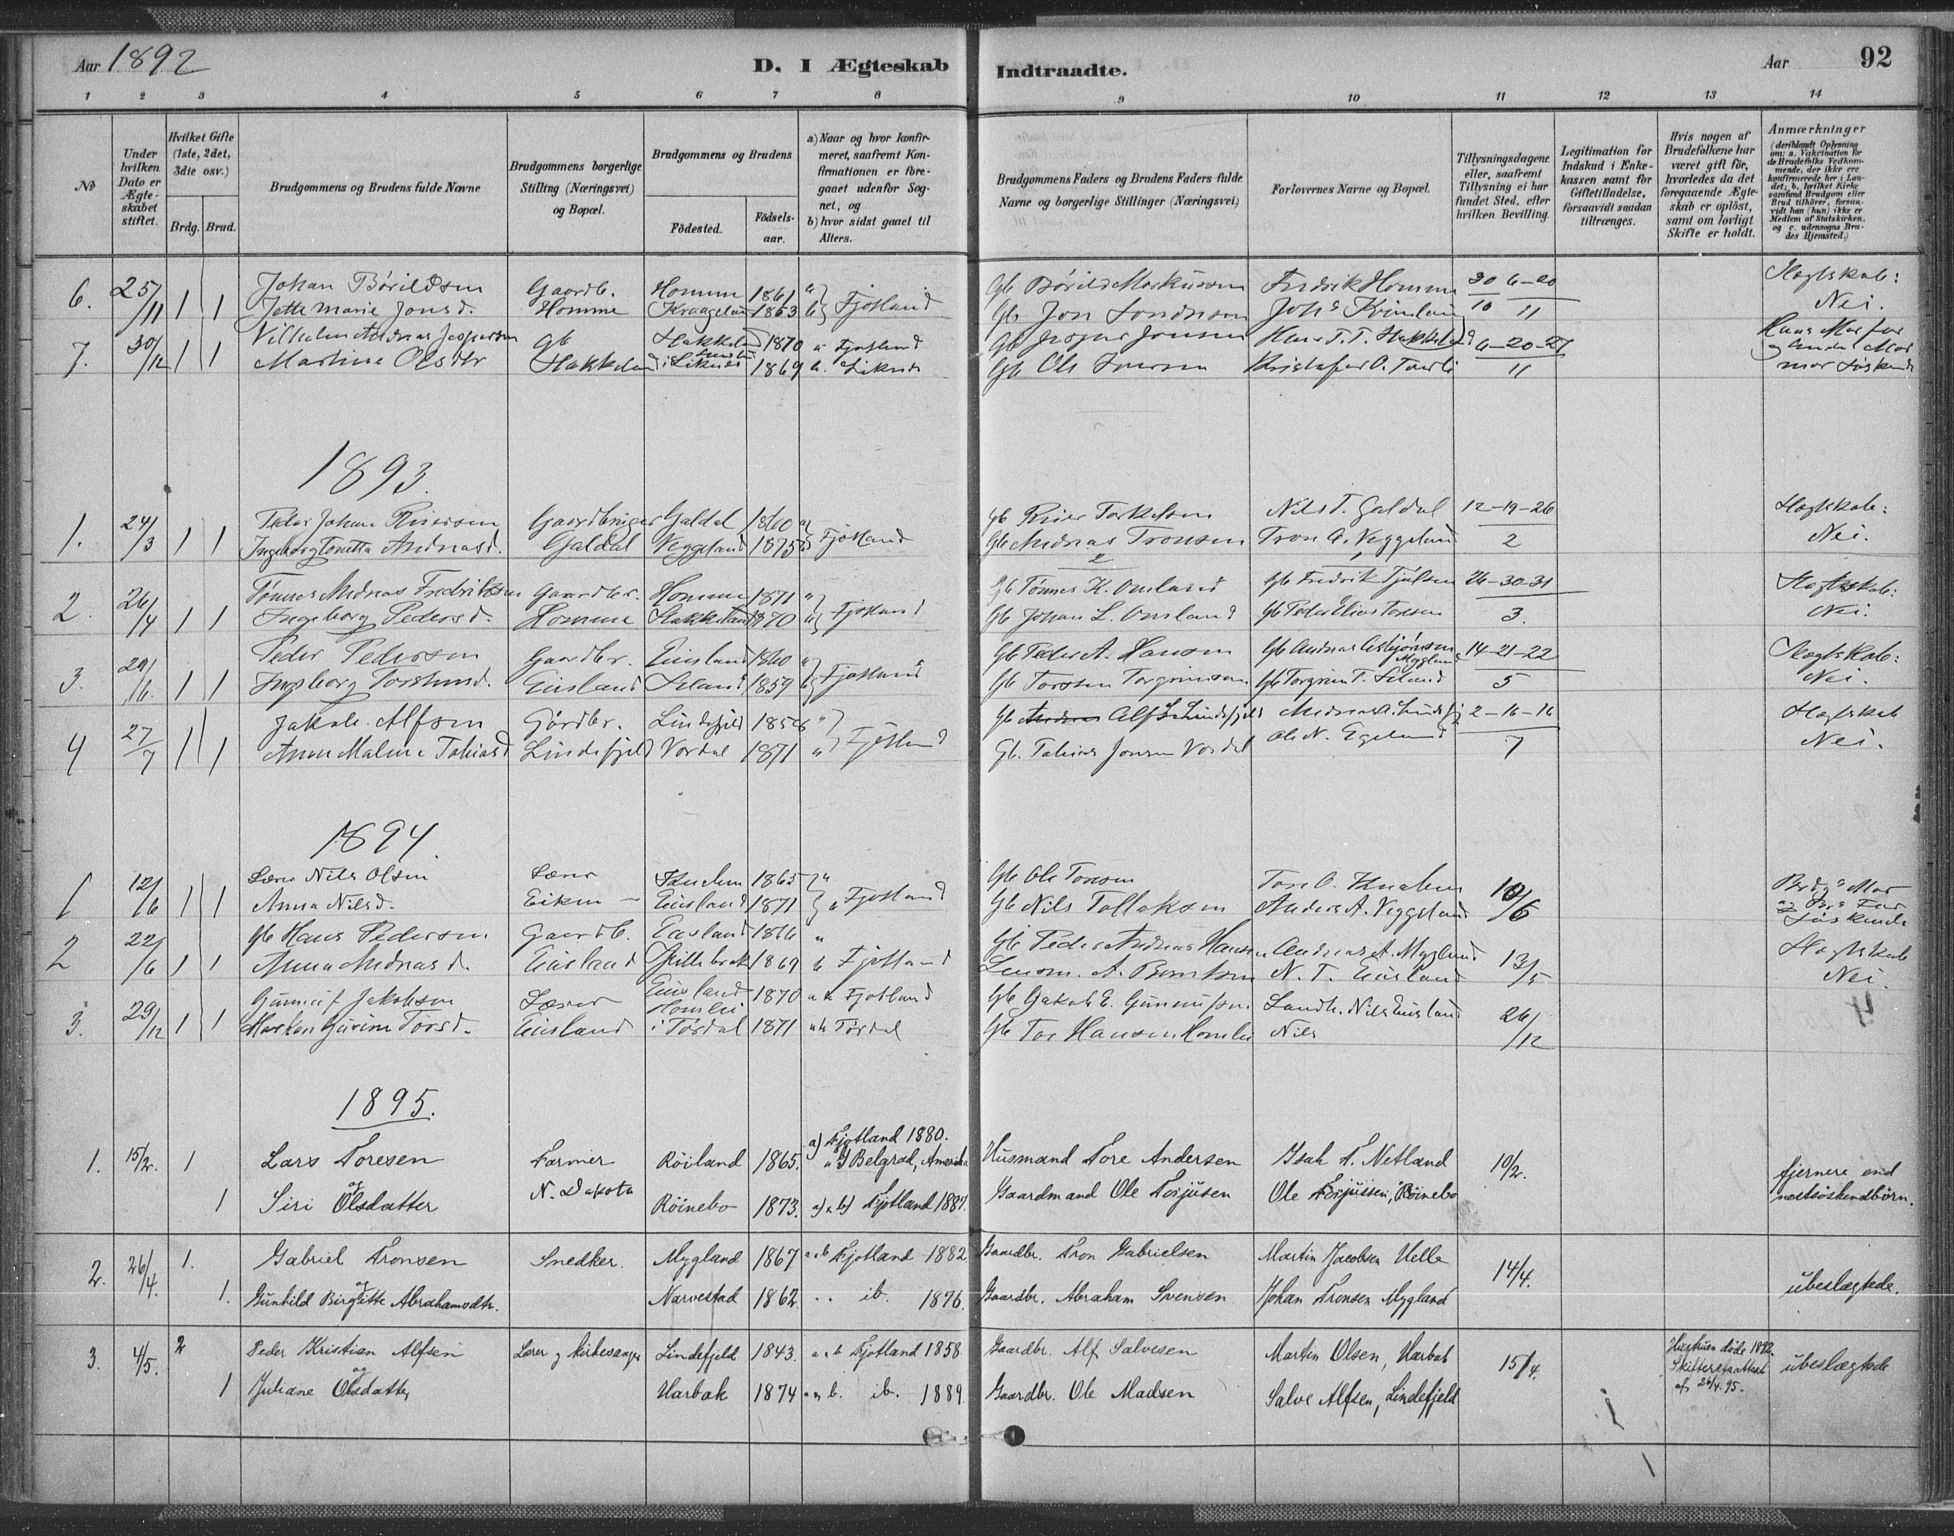 Aar 1892 D. I Ægteskab Indtraadte. Aar 92
1 2 3 4 5 6 7 8 9 10 11 12 13 14
No
Under hvilken Dato er Ægteskabet stiftet.
Hvilket Gifte (1ste, 2det, 3die osv.)
Brdg. Brud.
Brudgommens og Brudens fulde Navne
Brudgommens borgerlige Stilling (Næringsvei) og Bopæl.
Brudgommens og Brudens
Fødested. Fødselsaar.
a) Naar og hvor konfirmeret, saafremt Konfirmationen er foregaaet udenfor Sognet, og
b) hvor sidst gaaet til Alters.
Brudgommens Faders og Brudens Faders fulde Navne og borgerlige Stillinger (Næringsvei)
Forlovernes Navne og Bopæl.
Tillysningsdagene eller, saafremt Tillysning ei har fundet Sted, efter hvilken Bevilling.
Legitimation for Indskud i Enkekassen samt for Giftetilladelse, forsaavidt saadan tiltrænges.
Hvis nogen af Brudefolkene har været gift før, hvorledes da det foregaaende Ægteskab er opløst, samt om lovligt Skifte er holdt.
Anmærkninger
6. 25/11 1 1 Johan Børildsen Gaardb. Homme 1861 Fjotland Gb Børild Markussen Fredrik Homme 30 6-20
Jette Marie Jonsd. Homme 1863 Gb Jon 10 11 Nei.
7. 30/12 1 1 Vilhelm Andreas Jespersen Gb Hakkeland 1870 Fjotland Gb Jesper Jonsen Hans T. T. Hakkeland 6-20-27
Martine Olsdtr Hakkeland 1869 Gb Ole 11
1893.
1. 24/3 1 1 Peder Johan Reiersen Gaardbruger Galdal 1860 Fjotland Gb Reier Torkelsen Nils T. Galdal 12-19-26 Slegtskab:
Ingeborg Tonetta Andreasd. Galdal Veggeland 1875 Gb Andreas Tronsen Tron A. Veggeland 2 Nei.
2. 26/4 1 1 Tønnes Andreas Fredriksen Gaardbr. Homme 1871 Fjotland Gb Tønnes K. Omland Gb Fredrik 26-30-31 Slegtskab:
Ingeborg Pedersd. Homme Hakkeland 1870 Gb Johan L. Omland 3. Nei.
3. 29/6 1 1 Peder Pedersen Gaardbr. Eiesland 1860 Fjotland Gb Peder A. Hansen Gb Andreas Asbjørnsen Mygland 14-21-22 Slegtskab:
Ingeborg Eiesland 1859 Gb Torsten Torgrimsen Gb Torgrim T. 5 Nei.
4 27/7 1 1 Jakob Alfsen Gårdbr. Lindefjeld 1856 Fjotland Gb Alf Lindefjeld 2-16-16 Slegtskab
Anne Malene Tobiasd. Lindefjeld Vordal 1871 Gb. Tobias Jonsen Vordal Ole N. Egeland 7 Nei.
1894.
1 12/6 1 1 Nils Olsen 1865 Gb Ole Toresen Tore O. Knaben 10/6 Brdg.s Mor
Anna Nilsd. Eiken Eiesland 1871 Fjotland Gb Nils Tollaksen Anders A. Veggeland og Br.s Far Søskende
2 22/6 1 1 Gb Hans Pedersen Gaardb. Eiesland 1866 Gb Peder Andreas Hansen Andreas A. Mygland 13/5 Slegtskab
Anna Andreasd. Eiesland 1869 Fjotland N. T. Eiesland Nei.
3. 29/12 1 1 Gunnuf Jakobsen Lærer Eiesland 1870 Fjotland Gb Jakob E. Gunnufsen Landh. Nils Eiesland 26/12
Gurine Torsd. Eiesland Homlei i Tørdal 1871 Tørdal Gb Tor Hansen Homlei Nils
1895.
1. 15/2. 1 Lars Toresen Farmer Røiland 1865. a) Fjotland 1880. Belgrad, Amerika Husmand Tore Andersen Isak T. Netland 10/2. fjernere end
1 og Siri Olsdatter N. Dakota Røinebo 1873. a) & b) Fjotland 1887. Gaardmand Ole Terjusen Ole Terjussen, Røinebo næstsøskendbørn.
2. 26/4. 1. Gabriel Tronsen Snedker. Mygland 1867 a & b Fjotland 1882. Gaardbr. Tron Gabrielsen Martin Jacobsen Helle 14/4. ubeslægtede.
1. og Gunhild Birgitte Abrahamsdtr. Narvestad 1862. ib. 1876. Gaardbr. Abraham Svensen Johan Tronsen Mygland
3. 4/5. 2 Peder Kristian Alfsen Lærer og Kirkesanger Lindefjeld 1843. a & b Fjotland 1858. Gaardbr. Alf Salvesen Martin Olsen, Harbak 15/4. Hustruen døde 1892. Skifteretsattest af 26/4. 95. ubeslægtede
1 og Juliane Olsdatter Harbak 1874 a & b. ib. 1889. Gaardbr. Ole Madsen Salve Alfsen, Lindefjeld